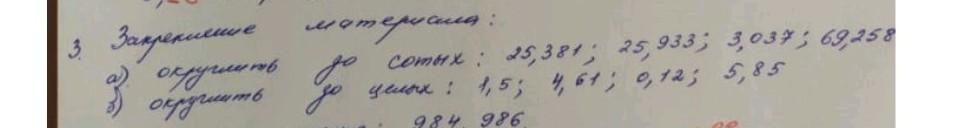 3. Закрепление материала:
а) округлить до сотых: 25,381; 25,933; 3,037; 69,258
б) округлить до целых: 1,5; 4,61; 0,12; 5,85
984, 986